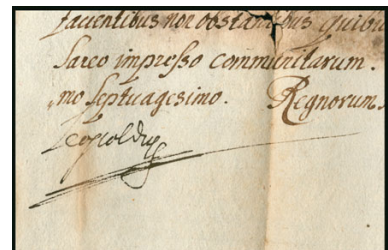 facientibus non obstantibus quibus
sareo impresso communitarum.
mo septuagesimo. Regnorum
Leopoldus